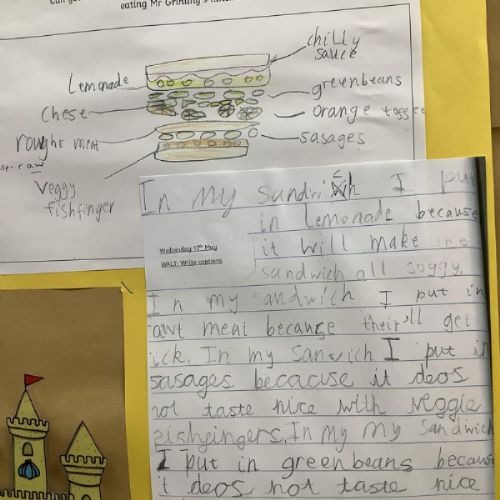 eating Mr Grinling's lunch
chilly
sauce
Lemonade
greenbeans
Chese
orange
rought meat
sasages
sp. raw
Veggy
fishfinger
In my sandwich I put
in lemonade because
Wednesday 17th May
it will make the
WALT: Write captions
sandwich all soggy.
In my sandwich I put in
rawt meat because their'll get
ick. In my Sanwich I put in
sasages becacuse it deos
not taste nice with veggie
fishfingers. In my my sandwich
I put in greenbeans because
it deos not taste nice